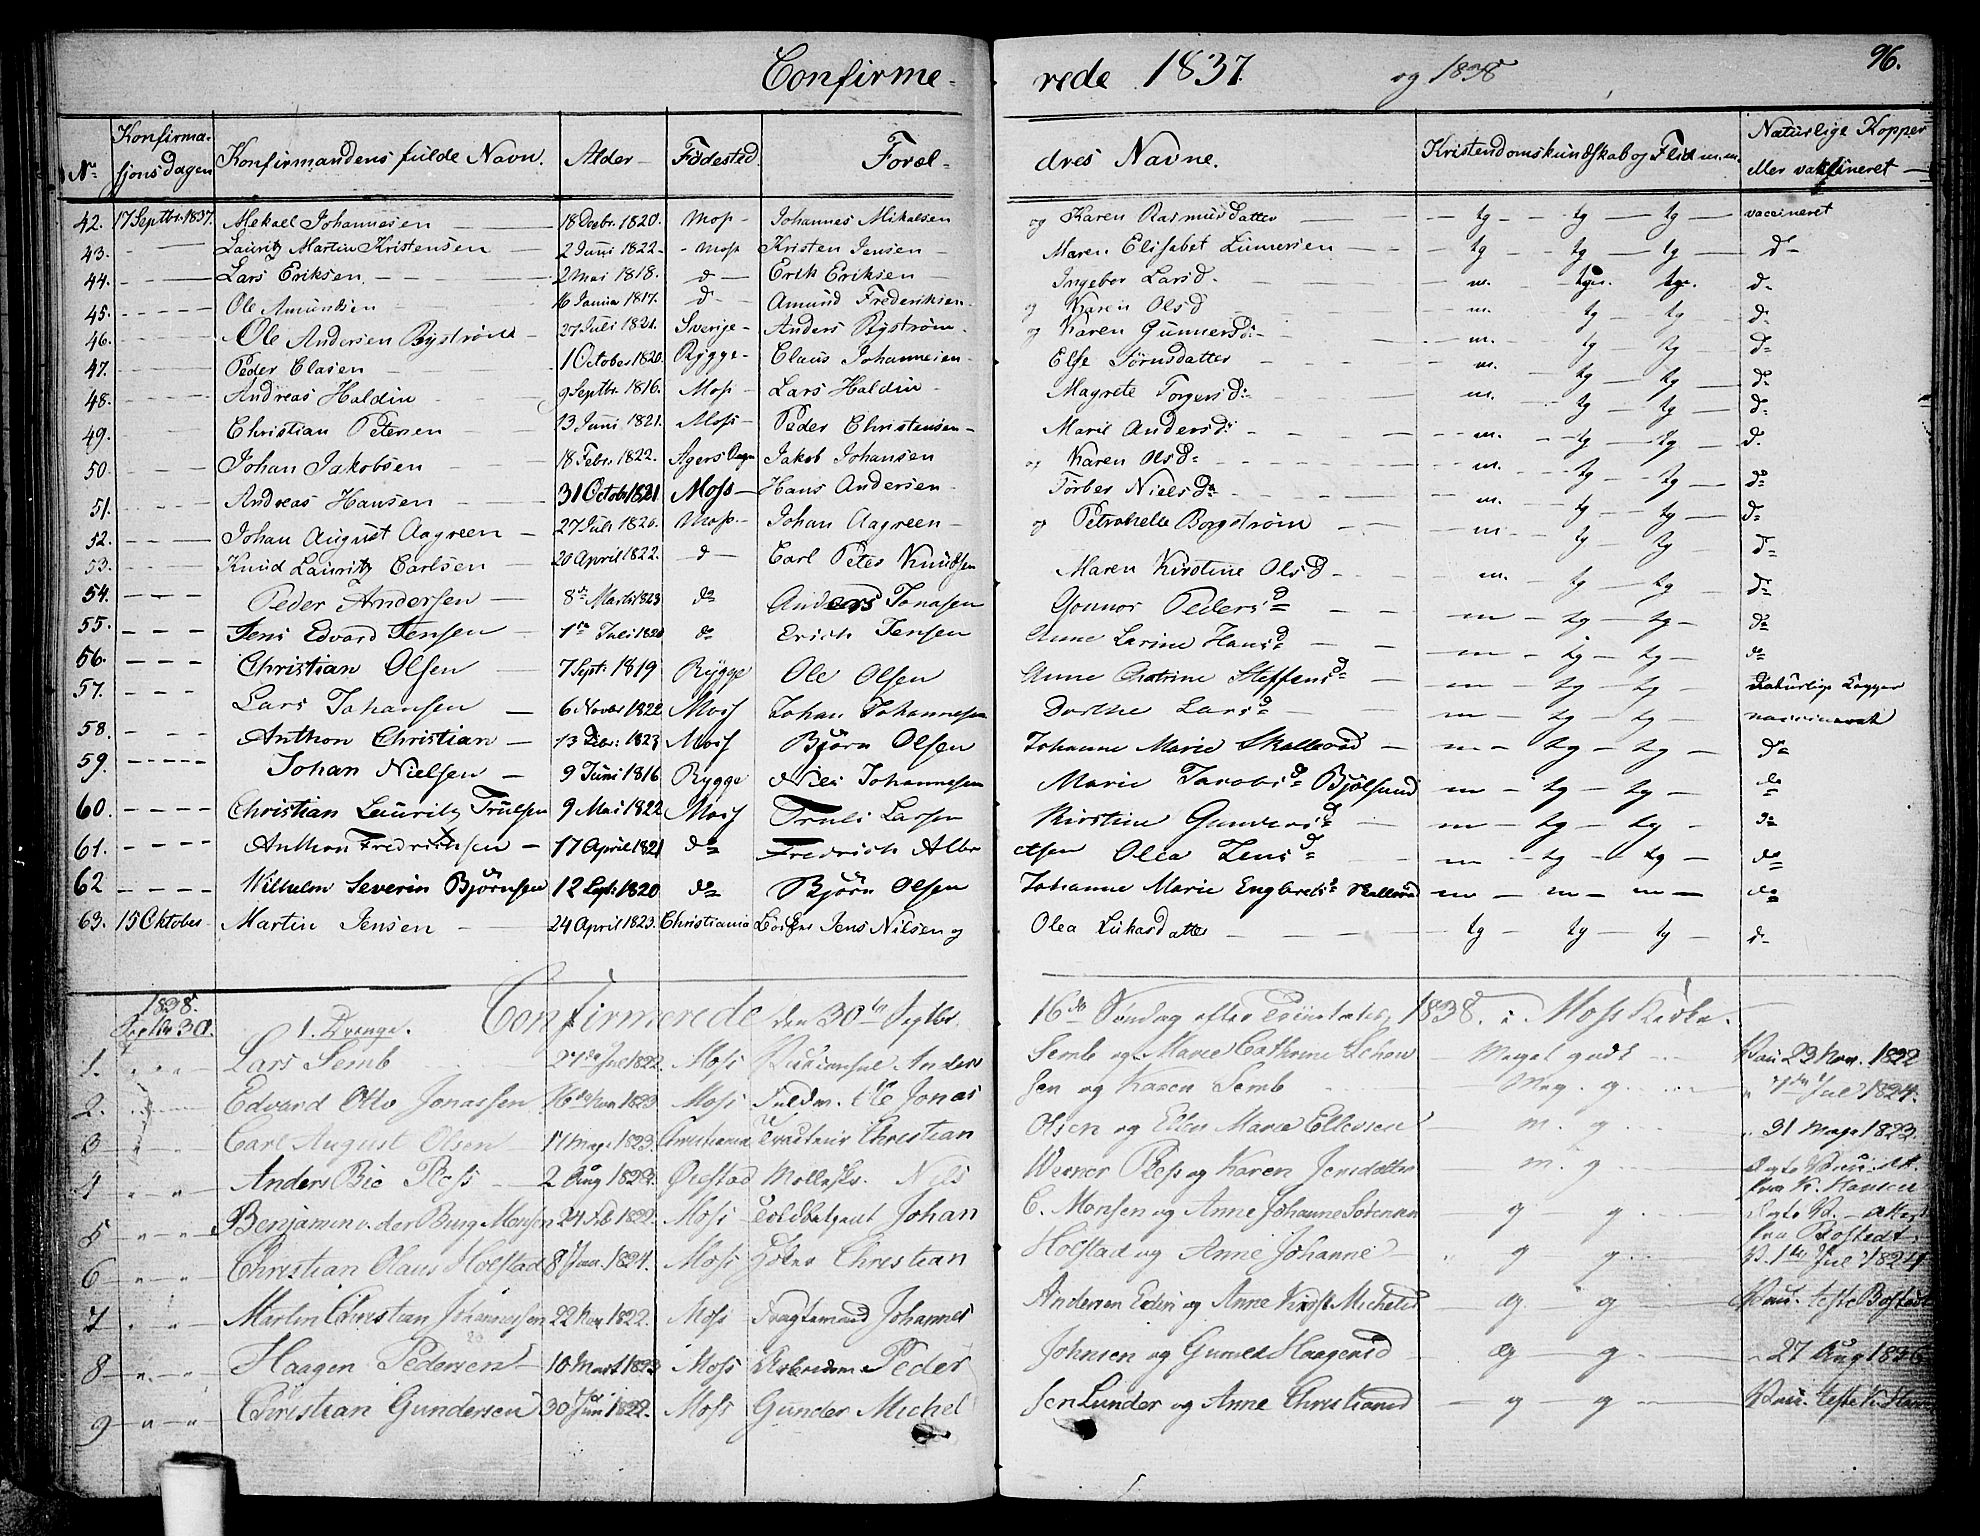 Confirmerede 1837. og 1838 96.
Nr Konfirmasjonsdagen Konfirmandens fulde Navn. Alder Fødested. Foreldres Navne. Kristendomskundskab og Flid m.m. Naturlige Kopper eller vaksineret
42. 17 Septbr. 1837. Mekael Johannesen 18 Decbr. 1820. Moss Johannes Mikalsen og Karen Rasmusdatter tg tg tg vaccineret
43. Lauritz Martin Kristensen 2 Juni 1822. Moss Kristen Jensen Maren Elisabet Linnersen tg tg tg d-
44. Lars Eriksen 2 Mai 1818. d Erik Eriksen Ingebor Larsd. m. tg. tg. d-
45. Ole Amundsen 16 Januar 1817. d- Amund Frederiksen og Karen Olsd m. tg tg d-
46. Ole Andersen Bystrøm 27 Juli 1821. Sverige Anders Bystrøm og Karen Gunnersd: m. tg tg d-
47. Peder Clasen 1 October 1820. Rygge Claus Johannesen Else Jørnsdatter m. tg tg d-
48. Andreas Haldin 9 Septbr. 1816. Moss Lars Haldin Magrete Torgersd: m. tg tg d-
49. Christian Petersen 13 Juni 1821. Moss Peder Christensen Marie Andersd: m. tg tg d-
50. Johan Jakobsen 18 Febr. 1822. Agers Jakob Johansen og Karen Olsd- m. tg tg d-
51. Andreas Hansen 31 Octob 1821 Moss Hans Andersen Torber Nielsd- m. tg tg d-
52. Johan August Aagreen 27 Juli 1820. Moss Johan Aagreen og Petronelle Borgstrøm m tg tg d-
53. Knud Lauritz Carlsen 20 April 1822. d Carl Peter Knudsen Maren Kirstine Olsd m. tg tg d-
54. Peder Andersen 8de Marts 1823 do Anders Jonasen Gonnor Pedersd m tg tg do
55. Jens Edvard Jensen 1ste Juli 1820 do Erich Jensen Anne Larine Hansd m tg tg do
56. Christian Olsen 7 Sept: 1819 Rygge Ole Olsen Anne Chatrine Steffensd m tg tg Naturlige Kopper
57. Lars Johansen 6 Novbr 1822 Moss Johan Johannesen Dorthe Larsd m tg tg vaccineret
58. Anthon Christian 13 1823 Moss Bjørn Olsen Johanne Marie Skallerød m tg tg do
59. Johan Nielsen 9 Juni 1816 Rygge Nils Johannesen Marie Jacobsd Bjølsund m tg tg do
60. Christian Lauritz Trulsen 9 Mai 1822 Moss Truls Larsen Kirstine Gundersd m tg tg do
61. Anthon Fredrichsen 17 April 1821 do Fredrich Albretsen Olea Jensd m tg tg do
62 Wilhelm Severin Bjørnsen 12 Sept: 1820 do Bjørn Olsen Johanne Marie Engbretsd Skallerød m m m do
63. 15 Oktober Martin Jensen 24 April 1823. Christiania Jens Nilsen og Olea Lukasdatter tg tg tg d-
1838. Septbr 30. 1. Drenge. Confirmerede den 30te Septbr. 16de Søndag efter Trinitatis 1838. i Moss Kirke.
1. Lars Semb 27de Jul 1822. Moss Anders Semb og Marie Cathrine Schou Meget godt Vac. 23 Nov. 1822
2. Edvard Otto Jonassen 16de Nov 1823 Moss Fuldm. Ole Jonassen og Karen Semb Meg. g. " 7de Jul 1824.
3 Carl August Olsen 17 Mag. 1823. Christiania Tracteur Christian Olsen og Ellen Marie Ellevsen m. g " 31 Mag 1823.
4 Anders Bie Pless 2 Aug 1822. Ørestad Møllesk. Nils Werner Pless og Karen Jensdatter m. g Vac. At. fra K. Hansen
5 Benjamin v. der Burg Monsen 24 Feb 1822. Moss Toldbetjent Johan C. Monsen og Anne Johanne Sørensen g g V. Attest fra Bostedt.
6 Christian Olaus Holstad 8 Jan. 1824. Moss Christian Holstad og Anne Johanne g g V. 1te Jul 1824
7 Martin Christian Johannessen 22 Nov 1822. Moss Fragtemand Johannes Andersen Eden og Anne Kirst. Michelsd g g Vac. teste Bostedt
8 Haagen Pedersen 10 Mart 1823 Moss Arbeidsm. Peder Johnsen og Gunild Haagensd g g " 27 Aug 1836
9 Christian Gundersen 30 Jun 1822. Moss Gunder Michelsen Lunder og Anne Christiansd g g Vac. teste K. Hansen